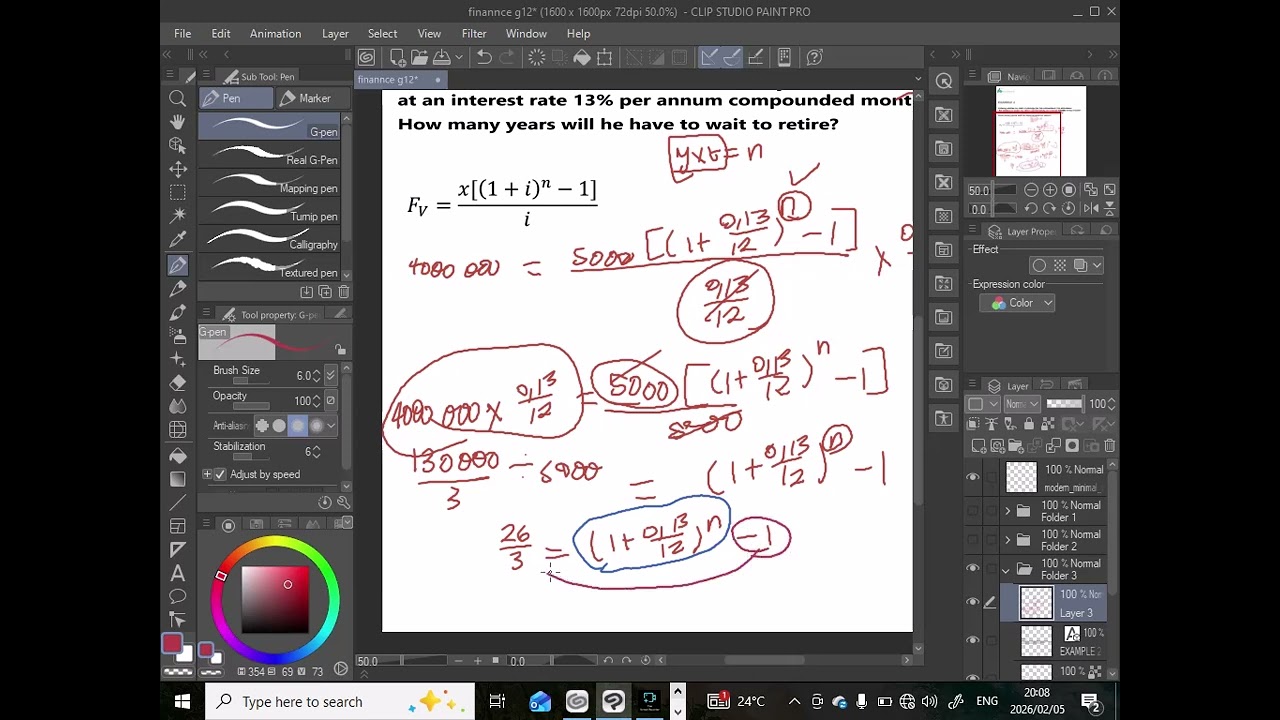 finannce g12* (1600 x 1600px 72dpi 50.0%) - CLIP STUDIO PAINT PRO
File Edit Animation Layer Select View Filter Window Help
Sub Tool: Pen
finannce g12*
Pen Marker
G-pen
Real G-Pen
Mapping pen
Turnip pen
Calligraphy
Textured pen
Tool property: G-p
G-pen
Brush Size 6.0
Opacity 100
Anti-alias
Stabilization 6
Adjust by speed
354 69 73
at an interest rate 13% per annum compounded mont
How many years will he have to wait to retire?
y×t = n
F_V = x[(1 + i)^n − 1] / i
4000 000 = 5000 [(1 + 0,13/12)^n − 1] / (0,13/12) ×
4000 000 × 0,13/12 = 5000 [(1 + 0,13/12)^n − 1] / 5000
130000/3 ÷ 5000 = (1 + 0,13/12)^n − 1
26/3 = (1 + 0,13/12)^n − 1
50.0 0.0
Navig
50.0
0.0
Layer Prope
Effect
Expression color
Color
Layer
Norm 100
100 % Normal
modern_minimal
100 % Normal
Folder 1
100 % Normal
Folder 2
100 % Normal
Folder 3
100 % Nor
Layer 3
100 %
EXAMPLE 2
100 %
Type here to search
24°C
ENG
20:08
2026/02/05
2